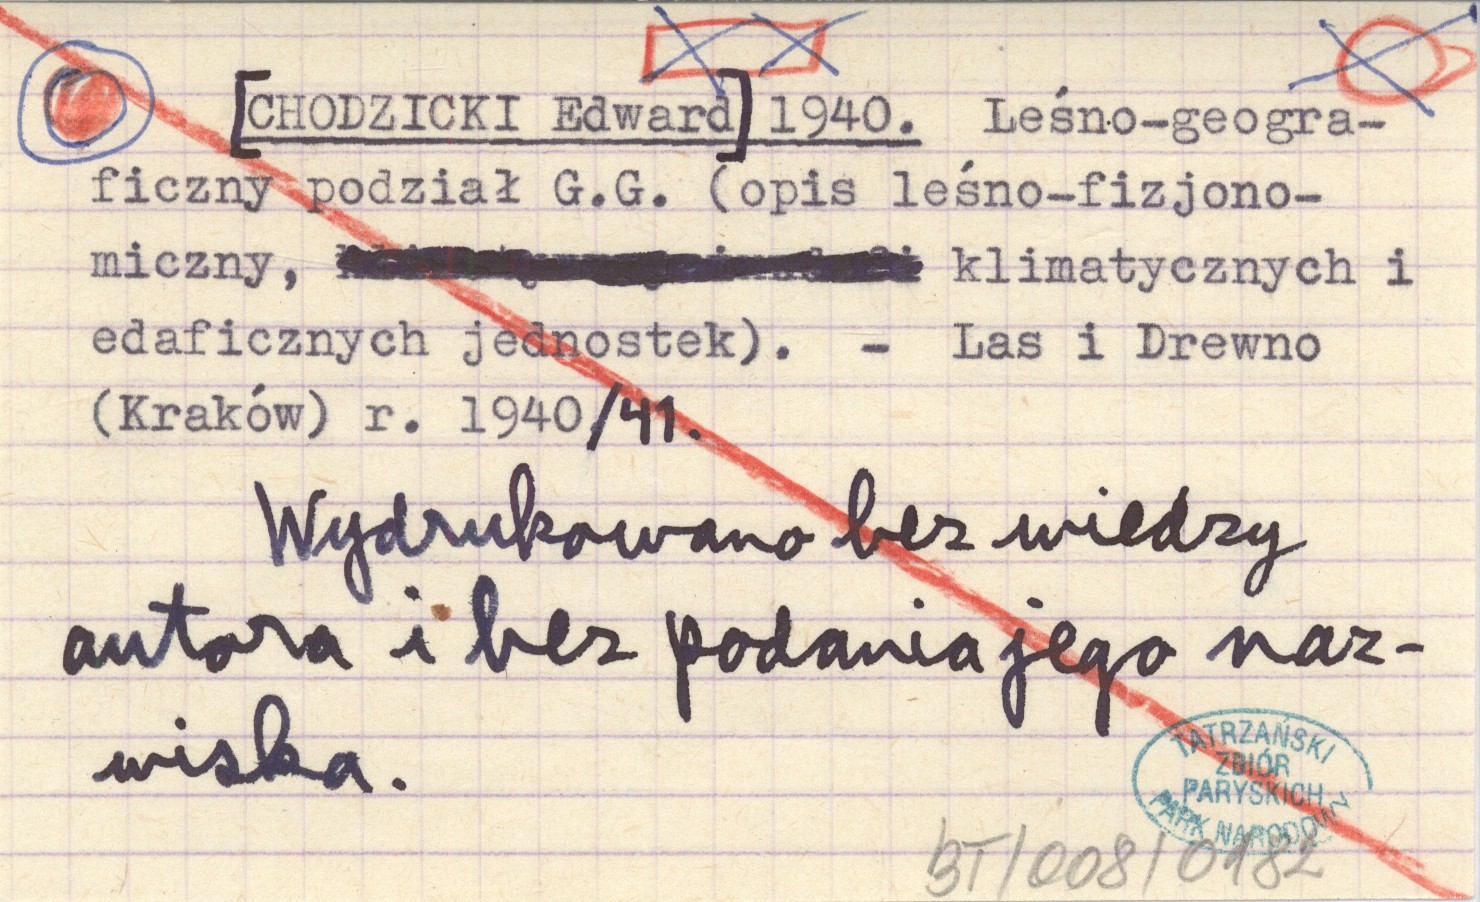 [CHODZICKI Edward] 1940. Leśno-geogra-
ficzny podział G.G. (opis leśno-fizjono-
miczny, klimatycznych i
edaficznych jednostek). - Las i Drewno
(Kraków) r. 1940/41.
Wydrukowano bez wiedzy
autora i bez podania jego naz-
wiska.
TATRZAŃSKI
ZBIÓR
PARYSKICH
PARK NARODOWY
BT/008/0182